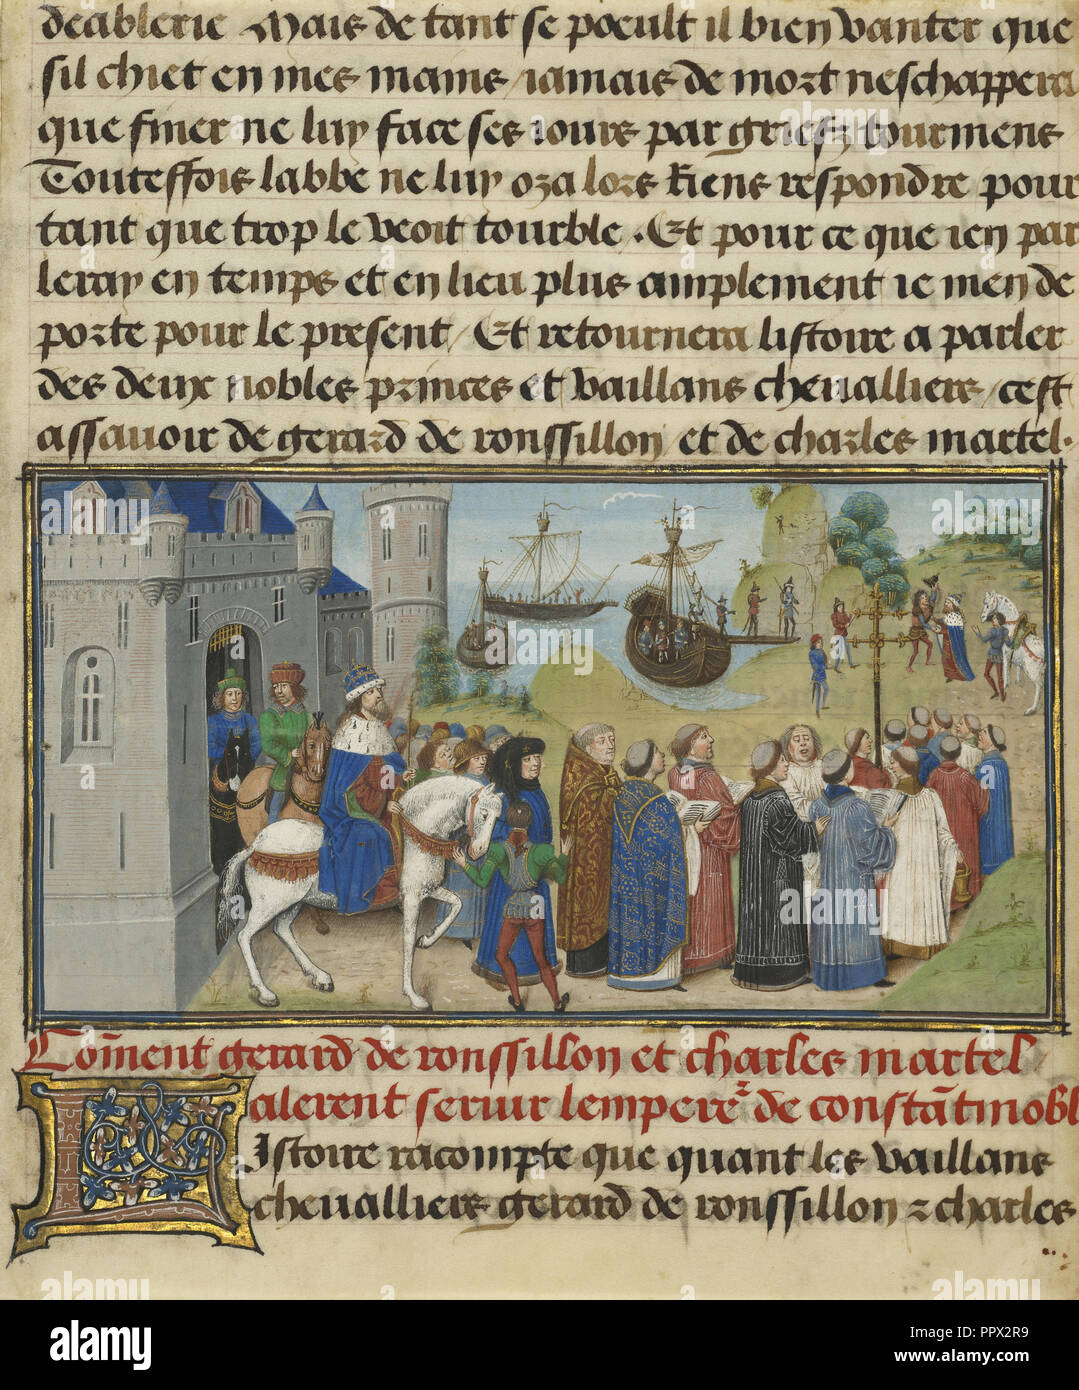 deablerie Mais de tant se poeult il bien vanter que
sil chiet en mes mains / iamais de mort neschappera
que finer ne luy face ses iours par griefz tourmens
Touteffois labbe ne luy oza lors Riens respondre pour
tant que trop le veoit tourble . Et pour ce que ien par
leray en temps et en lieu plus amplement ie men de
porte pour le present / Et retournera listoire a parler
des deux nobles princes et vaillans chevalliers / cest
assavoir de gerard de ronssillon / et de charles martel .
Cōment gerard de ronssillon et charles martel /
alerent servir lempereʳ de constātinobl
LIstoire racompte que quant les vaillans
chevalliers gerard de ronssillon ⁊ charles
alamy
alamy
Image ID: PPX2R9
www.alamy.com